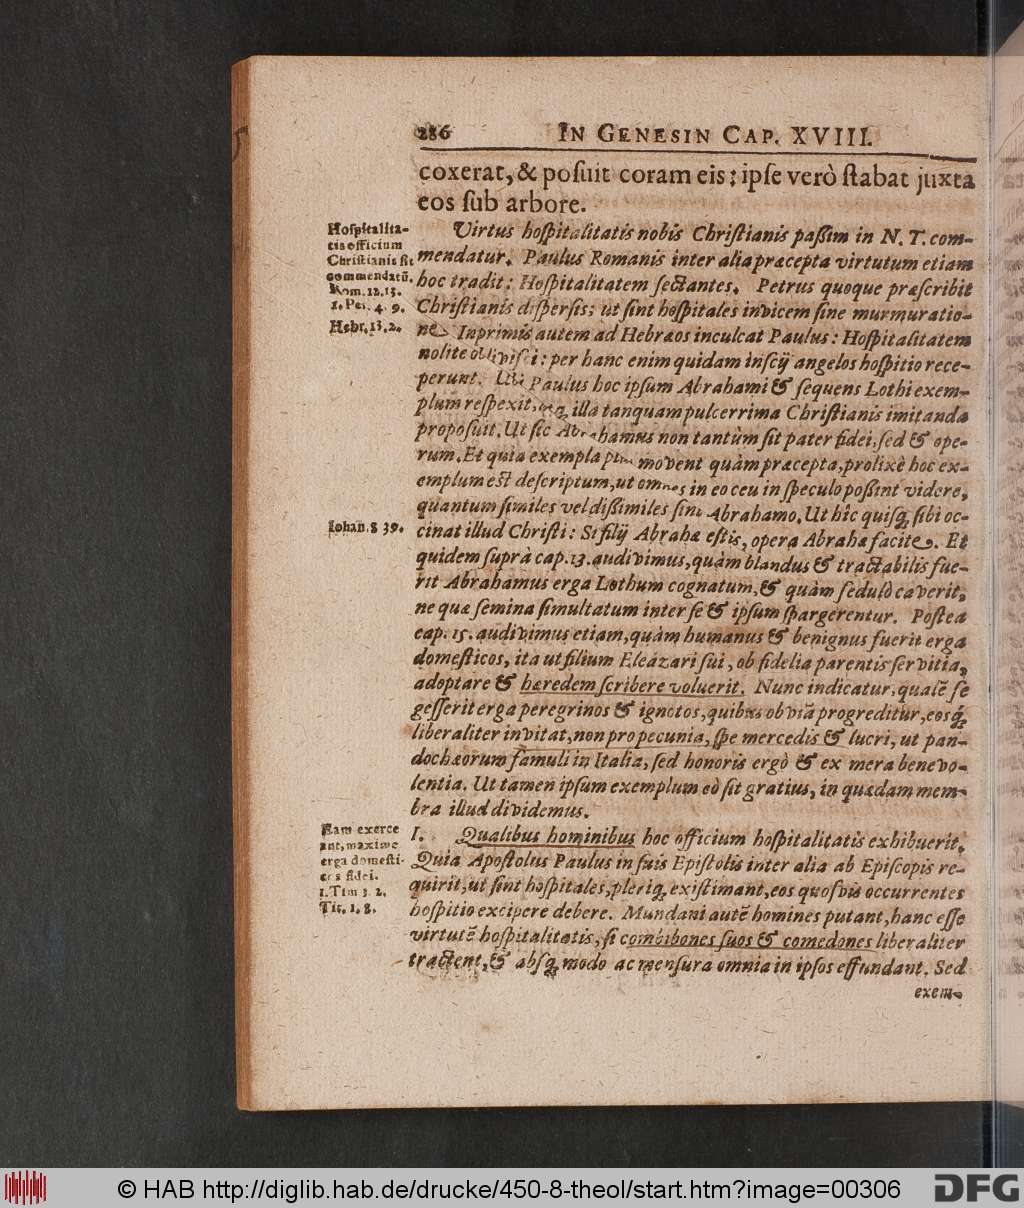 286 IN GENESIN CAP. XVIII.
coxerat, & posuit coram eis: ipse verò stabat juxta
eos sub arbore.
Hospitalita-
tis officium
Christianis sit
commendatũ.
Rom. 12, 13.
1. Pet. 4. 9.
Hebr. 13, 2.
Virtus hospitalitatis nobis Christianis passim in N. T. com-
mendatur. Paulus Romanis inter alia præcepta virtutum etiam
hoc tradit: Hospitalitatem sectantes. Petrus quoque præscribit
Christianis dispersis; ut sint hospitales invicem sine murmuratio-
ne. Inprimis autem ad Hebræos inculcat Paulus: Hospitalitatem
nolite oblivisci: per hanc enim quidam inscij angelos hospitio rece-
perunt. Ubi Paulus hoc ipsum Abrahami & sequens Lothi exem-
plum respexit, illa tanquam pulcerrima Christianis imitanda
proposuit. Ut sic Abrahamus non tantùm sit pater fidei, sed & ope-
rum. Et quia exempla plus movent quàm præcepta, prolixè hoc ex-
emplum est descriptum, ut omnes in eo ceu in speculo possint videre,
quantum similes vel dissimiles sint Abrahamo. Ut hîc quisq; sibi oc-
Iohan. 8 39.
cinat illud Christi: Si filij Abrahæ estis, opera Abrahæ facite. Et
quidem suprà cap. 13. audivimus, quàm blandus & tractabilis fue-
rit Abrahamus erga Lothum cognatum, & quàm sedulò caverit,
ne quæ semina simultatum inter se & ipsum spargerentur. Postea
cap. 15. audivimus etiam, quàm humanus & benignus fuerit erga
domesticos, ita ut filium Eleazari sui, ob fidelia parentis servitia,
adoptare & hæredem scribere voluerit. Nunc indicatur, qualẽ se
gesserit erga peregrinos & ignotos, quibus obviã progreditur, eosq́;
liberaliter invitat, non pro pecunia, spe mercedis & lucri, ut pan-
dochæorum famuli in Italia, sed honoris ergò & ex mera benevo-
lentia. Ut tamen ipsum exemplum eò sit gratius, in quædam mem-
bra illud dividemus.
Eam exerce
ant, maxime
erga domesti-
cos fidei.
1. Tim 3. 2.
Tit. 1. 8.
I. Qualibus hominibus hoc officium hospitalitatis exhibuerit.
Quia Apostolus Paulus in suis Epistolis inter alia ab Episcopis re-
quirit, ut sint hospitales, pleriq; existimant, eos quosvis occurrentes
hospitio excipere debere. Mundani autẽ homines putant, hanc esse
virtutẽ hospitalitatis, si combibones suos & comedones liberaliter
tractent, & absq; modo ac mensura omnia in ipsos effundant. Sed
exem-
© HAB http://diglib.hab.de/drucke/450-8-theol/start.htm?image=00306
DFG